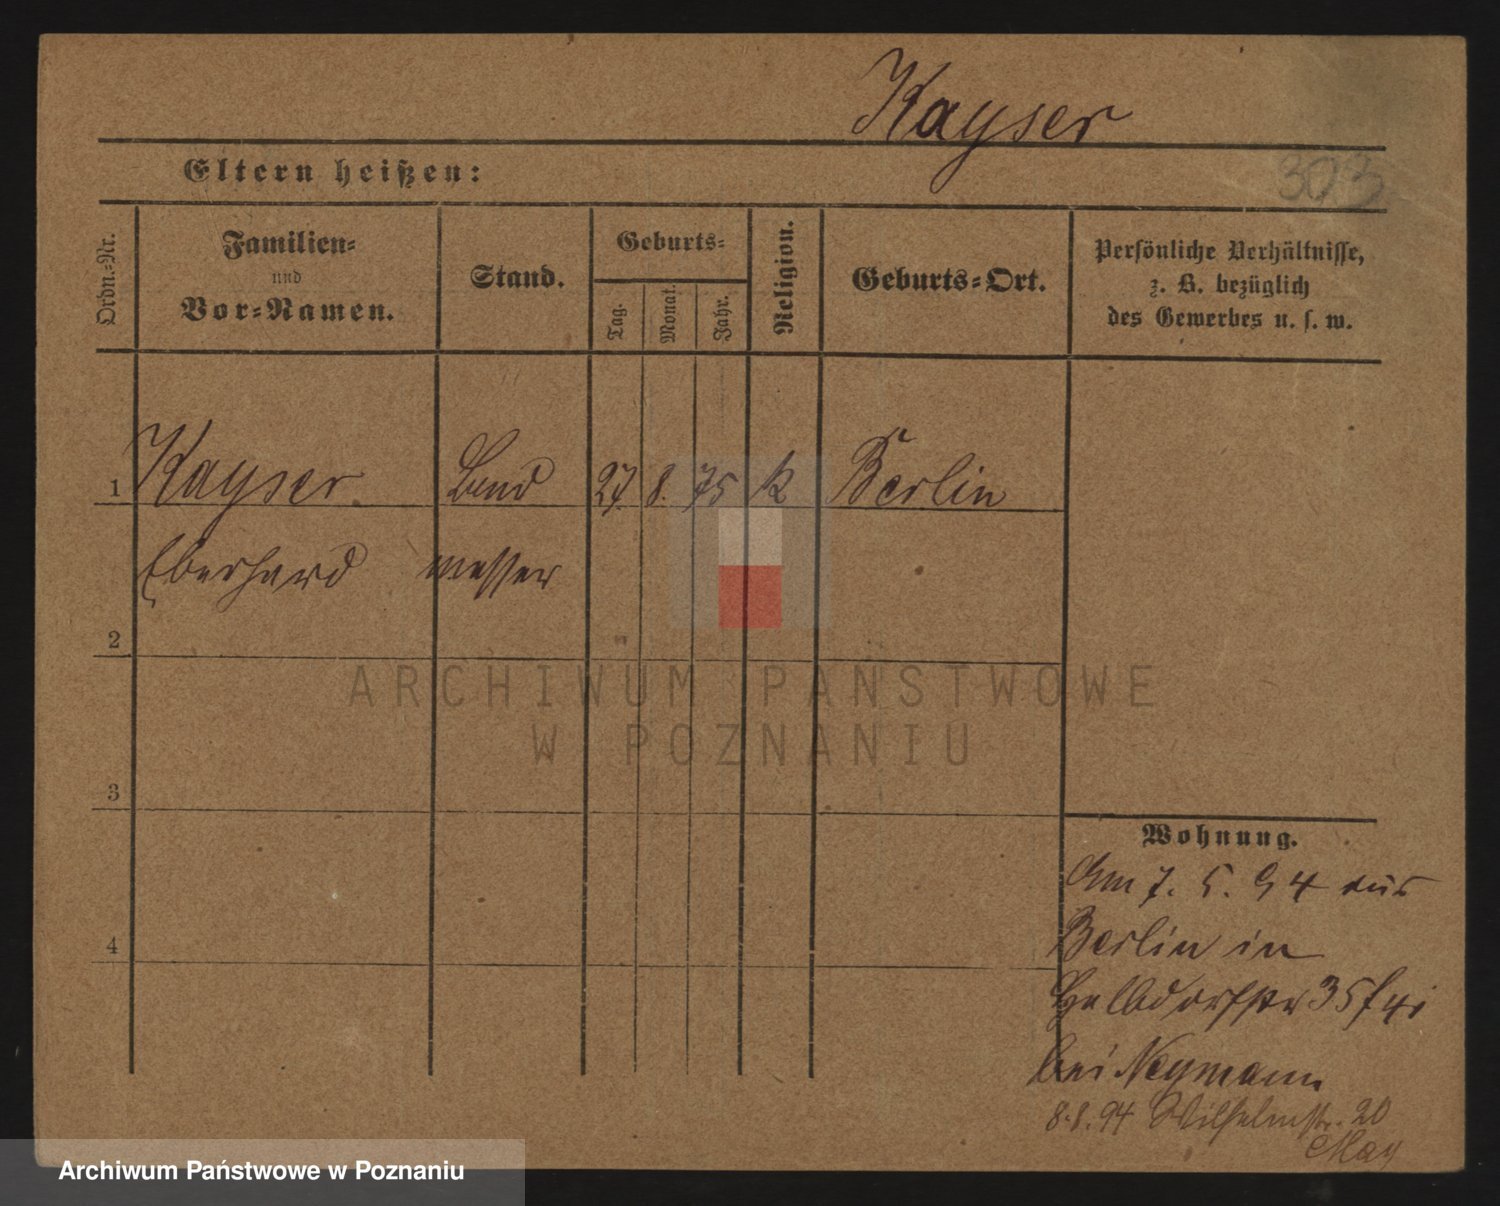 Kayser
303
Eltern heißen:
Ordn.-Nr.
Familien-
und
Vor-Namen.
Stand.
Geburts-
Tag.
Monat.
Jahr.
Religion.
Geburts-Ort.
Persönliche Verhältnisse,
z. B. bezüglich
des Gewerbes u. s. w.
1 Kayser Land 27. 8. 75 k Berlin
Eberhard messer
2
3
4
Wohnung.
Am 7. 5. 94 aus
Berlin in
Halbdorfstr 35
bei Neymann
8.8.94 Wilhelmstr. 20
May
ARCHIWUM PAŃSTWOWE
W POZNANIU
Archiwum Państwowe w Poznaniu